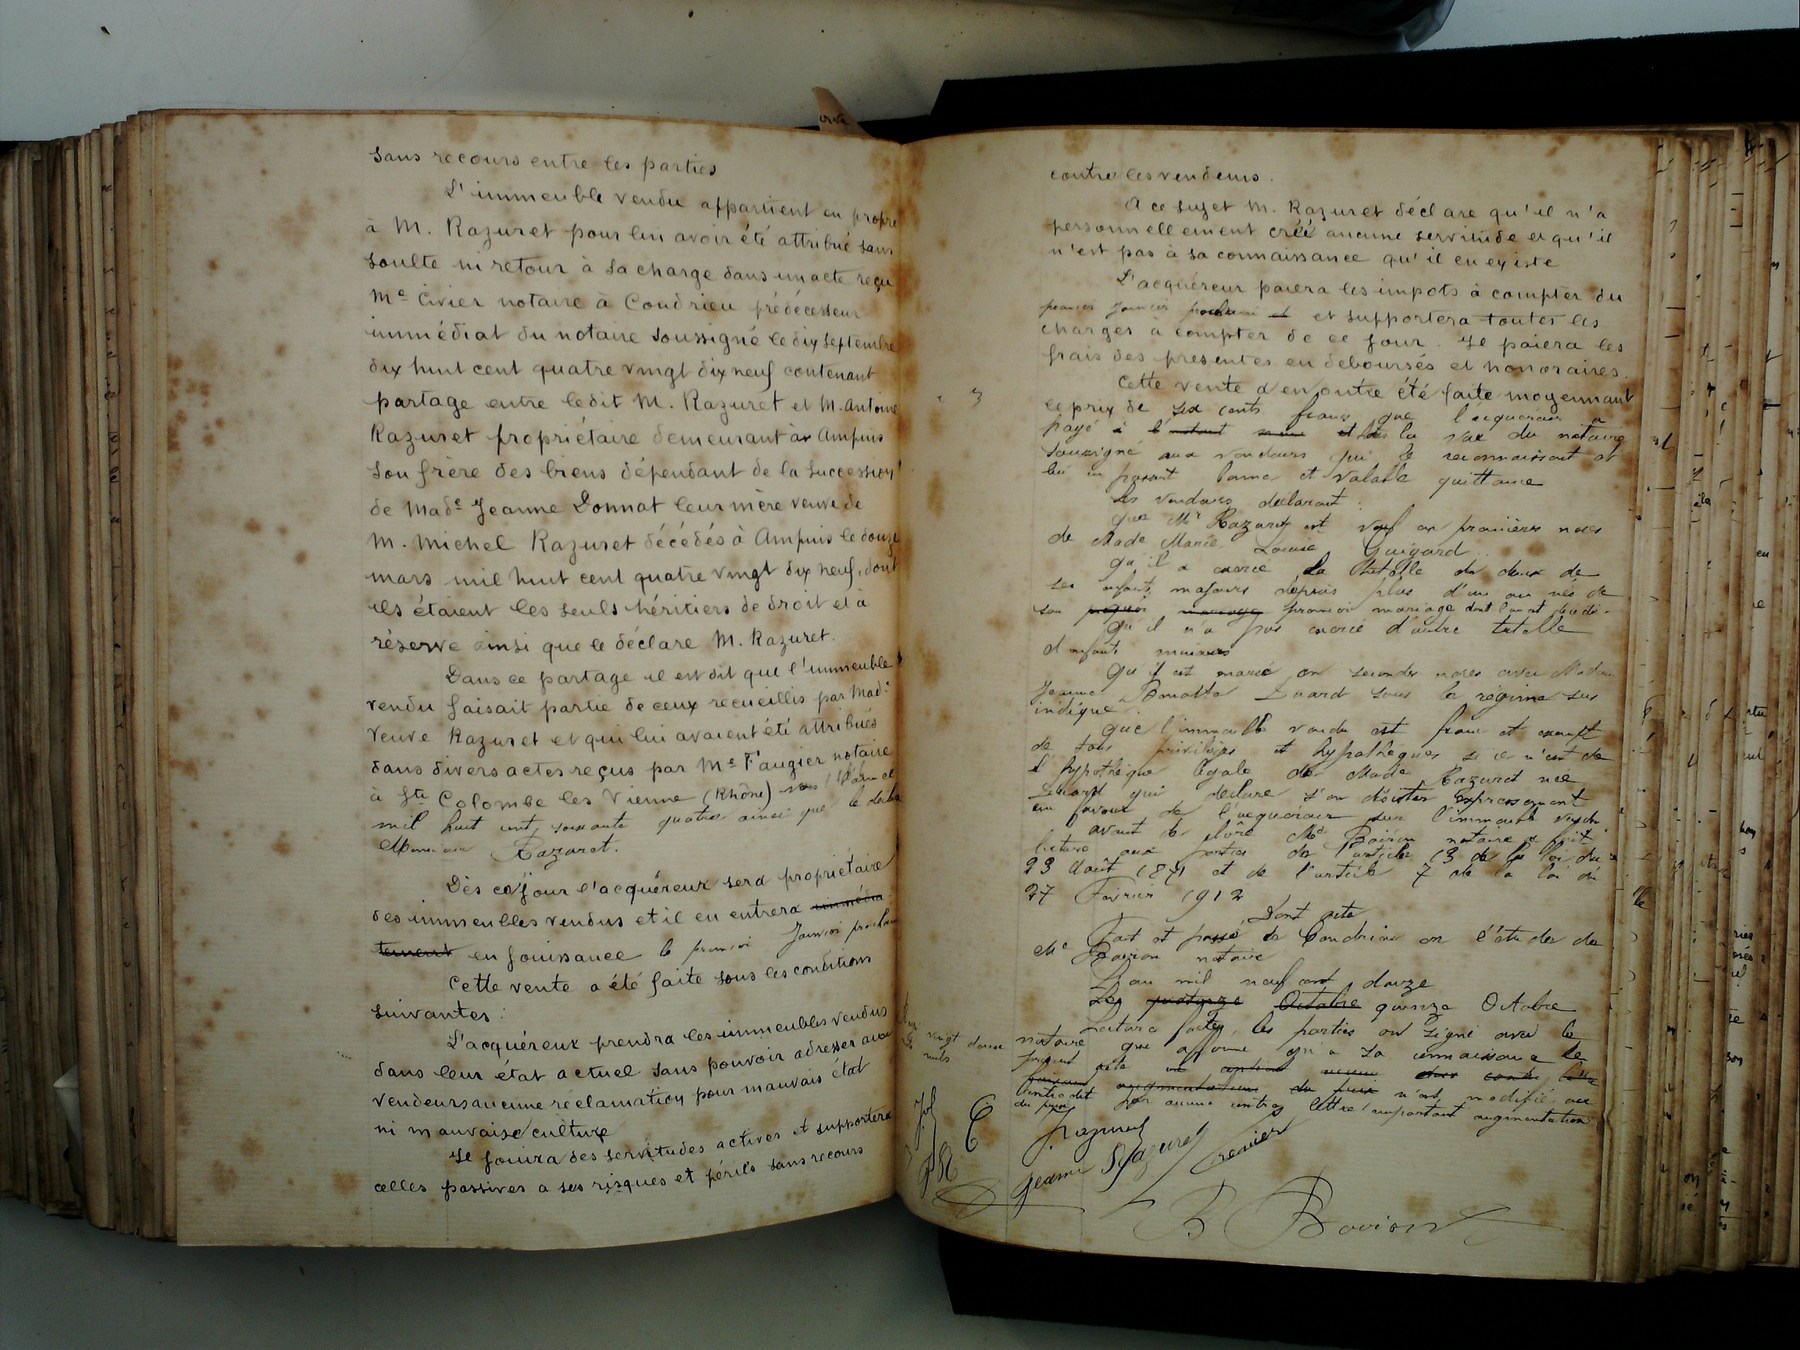 sans recours entre les parties
L'immeuble vendu appartient en propre
à M. Razuret pour lui avoir été attribué sans
soulte ni retour à sa charge dans un acte reçu
Me Civier notaire à Condrieu prédécesseur
immédiat du notaire soussigné le dix septembre
dix huit cent quatre vingt dix neuf contenant
partage entre ledit M. Razuret et M. Antoine
Razuret propriétaire demeurant à Ampuis
son frère des biens dépendant de la succession
de Made Jeanne Donnat leur mère veuve de
M. Michel Razuret décédés à Ampuis le douze
mars mil huit cent quatre vingt dix neuf, dont
ils étaient les seuls héritiers de droit et à
réserve ainsi que le déclare M. Razuret.
Dans ce partage il est dit que l'immeuble
vendu faisait partie de ceux recueillis par Made
Veuve Razuret et qui lui avaient été attribués
dans divers actes reçus par Me Faugier notaire
à Ste Colombe les Vienne (Rhône)
mil huit cent soixante quatre ainsi que le déclare
Monsieur Razuret.
Dès ce jour l'acquéreur sera propriétaire
des immeubles vendus et il en entrera
en jouissance le premier Janvier prochain
Cette vente a été faite sous les conditions
suivantes :
L'acquéreur prendra les immeubles vendus
dans leur état actuel sans pouvoir adresser aux
vendeurs aucune réclamation pour mauvais état
ni mauvaise culture
Il jouira des servitudes actives et supportera
celles passives a ses risques et périls sans recours
contre les vendeurs.
A ce sujet M. Razuret déclare qu'il n'a
personnellement créé aucune servitude et qu'il
n'est pas à sa connaissance qu'il en existe
L'acquéreur paiera les impots à compter du
premier Janvier prochain et supportera toutes les
charges à compter de ce jour. Il paiera les
frais des présentes en déboursés et honoraires.
Cette vente a en outre été faite moyennant
le prix de six cents francs que l'acquéreur a
payé à l'instant la vue du notaire
soussigné aux vendeurs qui le reconnaissent et
lui en passent bonne et valable quittance
Les vendeurs déclarent :
que Mr Razuret est veuf en premières noces
de Made Marie Louise Guigard
qu'il a exercé la tutelle de deux de
ses enfants majeurs depuis plus d'un an nés de
son premier mariage dont l'un est décédé.
qu'il n'a pas exercé d'autre tutelle
d'enfants mineurs
qu'il est marié en secondes noces avec Madame
Jeanne sous le régime sus
indiqué.
que l'immeuble vendu est franc et exempt
de tous privilèges et hypothèques si ce n'est de
l'hypothèque légale de Made Razuret née
qui déclare s'en désister expressement
en faveur de l'acquéreur sur l'immeuble vendu
avant de clore Me Boiron notaire a fait
lecture aux parties de l'article 13 de la loi du
23 Août 1871 et de l'article 7 de la loi du
27 Février 1912
Dont acte
Fait et passé à Condrieu en l'étude de
Me Boiron notaire
L'an mil neuf cent douze
Le quatorze Octobre quinze Octobre
Lecture faite, les parties ont signé avec le
notaire que affirme qu'à sa connaissance le
présent acte
n'est modifié ou
contredit par aucune contre lettre important augmentation
du prix
vingt deux
mots
Razuret
Jeanne Razuret
B Boiron